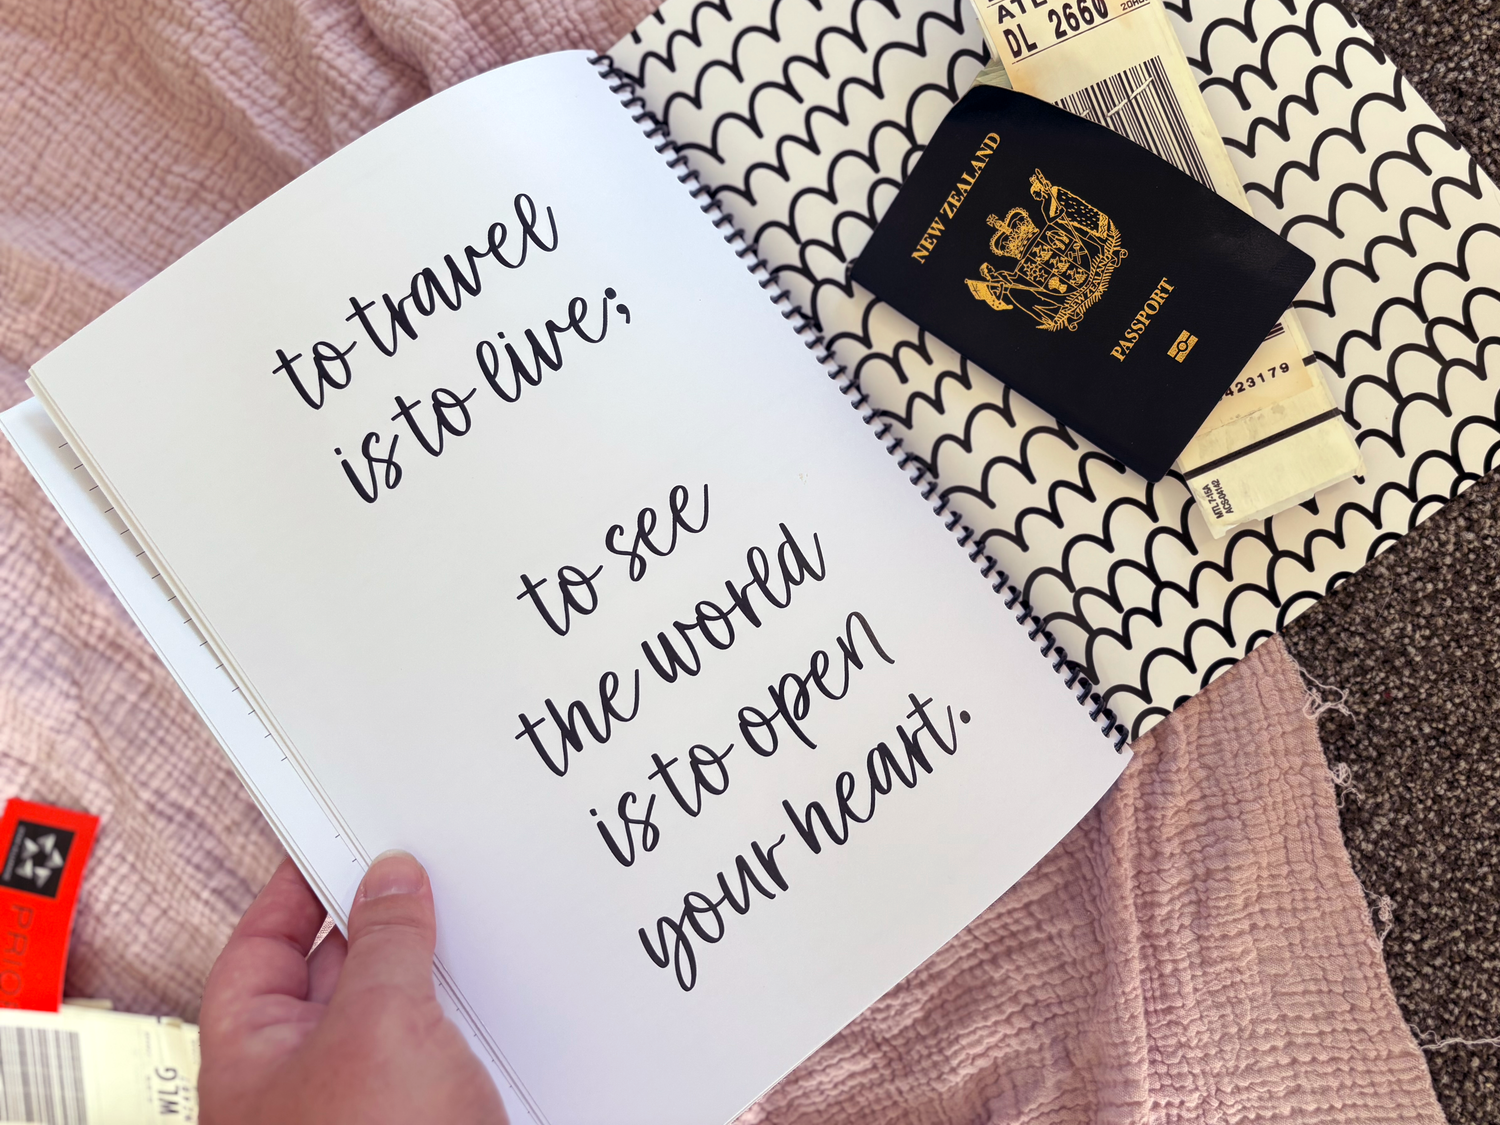 to travel
is to live;
to see
the world
is to open
your heart.
NEW ZEALAND
PASSPORT
DL 2660
423179
MTL7-15A
WLG